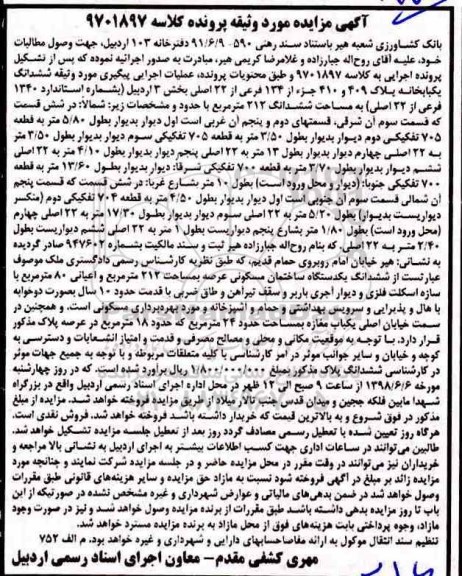 آگهی مزایده مورد وثیقه پرونده کلاسه ۹۷۰۱۸۹۷
بانک کشاورزی شعبه هیر باستناد سند رهنی ۵۹۰- ۹۱/۶/۹ دفترخانه ۱۰۳ اردبیل، جهت وصول مطالبات
خود، علیه آقای روح‌اله جبارزاده و غلامرضا کریمی هیر، مبادرت به صدور اجرائیه نموده که پس از تشکیل
پرونده اجرایی به کلاسه ۹۷۰۱۸۹۷ و طبق محتویات پرونده، عملیات اجرایی پیگیری مورد وثیقه ششدانگ
یکبابخانه پلاک ۴۰۹ و ۴۱۰ جزء از ۱۳۴ فرعی از ۲۲ اصلی بخش ۳ اردبیل (بشماره استاندارد ۱۳۴۰
فرعی از ۲۲ اصلی) به مساحت ششدانگ ۲۱۲ مترمربع با حدود و مشخصات زیر: شمالا: در شش قسمت
که قسمت سوم آن شرقی، قسمتهای دوم و پنجم آن غربی است اول دیوار بدیوار بطول ۵/۸۰ متر به قطعه
۷۰۵ تفکیکی دوم دیوار بدیوار بطول ۳/۵۰ متر به قطعه ۷۰۵ تفکیکی سوم دیوار بدیوار بطول ۳/۵۰ متر
به ۲۲ اصلی چهارم دیوار بدیوار بطول ۱۳ متر به ۲۲ اصلی پنجم دیوار بدیوار بطول ۴/۱۰ متر به ۲۲ اصلی
ششم دیوار بدیوار بطول ۲/۲۰ متر به قطعه ۷۰۰ تفکیکی شرقا: دیوار بدیوار بطول ۱۳/۶۰ متر به قطعه
۷۰۰ تفکیکی جنوبا: (دیوار و محل ورود است) بطول ۱۰ متر بشارع غربا: در شش قسمت که قسمت پنجم
آن شمالی قسمت سوم آن جنوبی است اول دیوار بدیوار بطول ۴/۵۰ متر به قطعه ۷۰۴ تفکیکی دوم (منکسر
دیواریست بدیوار) بطول ۵/۲۰ متر به ۲۲ اصلی سوم دیوار بدیوار بطول ۱۷/۳۰ متر به ۲۲ اصلی چهارم
(محل ورود است) بطول ۱/۸۰ متر بشارع پنجم دیواریست بطول ۱ متر به ۲۲ اصلی ششم دیواریست بطول
۲/۴۰ متر به ۲۲ اصلی، که بنام روح‌اله جبارزاده هیر ثبت و بسند مالکیت بشماره ۹۴۷۶۰۲ صادر گردیده
به نشانی: هیر خیابان امام روبروی حمام قدیم، که طبق نظریه کارشناس رسمی دادگستری ملک موصوف
عبارتست از ششدانگ یکدستگاه ساختمان مسکونی عرصه بمساحت ۲۱۲ مترمربع و اعیانی ۸۰ مترمربع با
سازه اسکلت فلزی و دیوار آجری باربر و سقف تیرآهن و طاق ضربی با قدمت حدود ۱۰ سال بصورت دوخوابه
با هال و پذیرایی و سرویس بهداشتی و حمام، آشپزخانه و مورد بهره‌برداری مسکونی است، و همچنین در
سمت خیابان اصلی یکباب مغازه بمساحت حدود ۲۴ مترمربع که حدود ۱۸ مترمربع در عرصه پلاک مذکور
قرار دارد. با توجه به موقعیت مکانی و محلی و مصالح مصرفی و قدمت و امتیاز انشعابات و دسترسی به
کوچه و خیابان و سایر جوانب موثر در امر کارشناسی با کلیه متعلقات مربوطه و با توجه به جمیع جهات موثر
در کارشناسی ششدانگ پلاک مذکور بمبلغ ریال برآورد شده است. که در روز چهارشنبه
مورخه ۱۳۹۸/۶/۶ از ساعت ۹ صبح الی ۱۲ ظهر در محل اداره اجرای اسناد رسمی اردبیل واقع در بزرگراه
شهدا مابین فلکه ججین و میدان قدس، جنب تالار میلاد از طریق مزایده فروخته خواهد شد. مزایده از مبلغ
مذکور در فوق شروع و به بالاترین قیمت که خریدار داشته باشد فروخته خواهد شد، فروش نقدی است.
هرگاه روز تعیین شده با تعطیل رسمی مصادف گردد روز بعد از تعطیل جلسه مزایده تشکیل خواهد شد.
طالبین می‌توانند در ساعات اداری جهت کسب اطلاعات بیشتر به اجرای اردبیل به نشانی بالا مراجعه و
خریداران نیز می‌توانند در وقت مقرر در محل مزایده حاضر و در جلسه مزایده شرکت نمایند و چنانچه مورد
مزایده زائد بر مبلغ در آگهی فروخته شود نسبت به مازاد حق مزایده و سایر هزینه‌های قانونی طبق مقررات
وصول خواهد شد در ضمن بدهی‌های مالیاتی و عوارض شهرداری و غیره مشخص نشده در صورتیکه از این
باب تا روز مزایده بدهی داشته باشد طبق مقررات از برنده مزایده وصول خواهد شد و نیز در صورت وجود
مازاد، وجوه پرداختی بابت هزینه‌های فوق از محل مازاد به برنده مزایده مسترد خواهد شد.
تنظیم سند انتقال موکول به ارائه مفاصاحسابهای دارایی و شهرداری و غیره خواهد بود. م الف ۷۵۲
مهری کشفی مقدم- معاون اجرای اسناد رسمی اردبیل